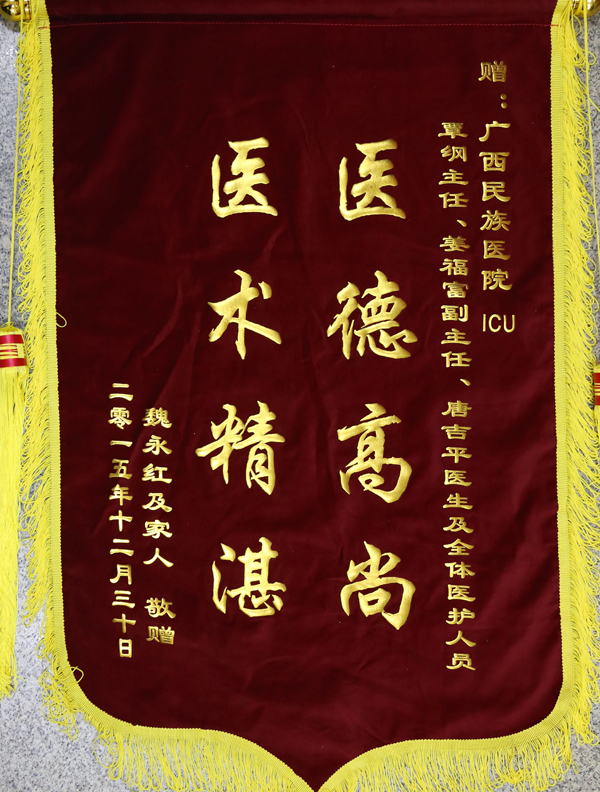 赠：广西民族医院 ICU
覃纲主任、姜福富副主任、唐吉平医生及全体医护人员
医德高尚
医术精湛
魏永红及家人 敬赠
二零一五年十二月三十日